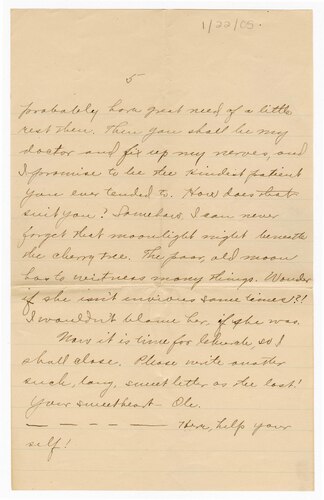 1/22/05.
5
probably have great need of a little
rest then. Then you shall be my
doctor and fix up my nerves, and
I promise to be the kindest patient
you ever tended to. How does that
suit you? Somehow I can never
forget that moonlight night beneath
the cherry tree. The poor, old moon
has to witness many things. Wonder
if she isn't envious sometimes?!
I wouldn't blame her, if she was.
Now it is time for so I
shall close. Please write another
such, long, sweet letter as the last!
Your sweetheart - Ole.
— — — — — — Here, help your
self!